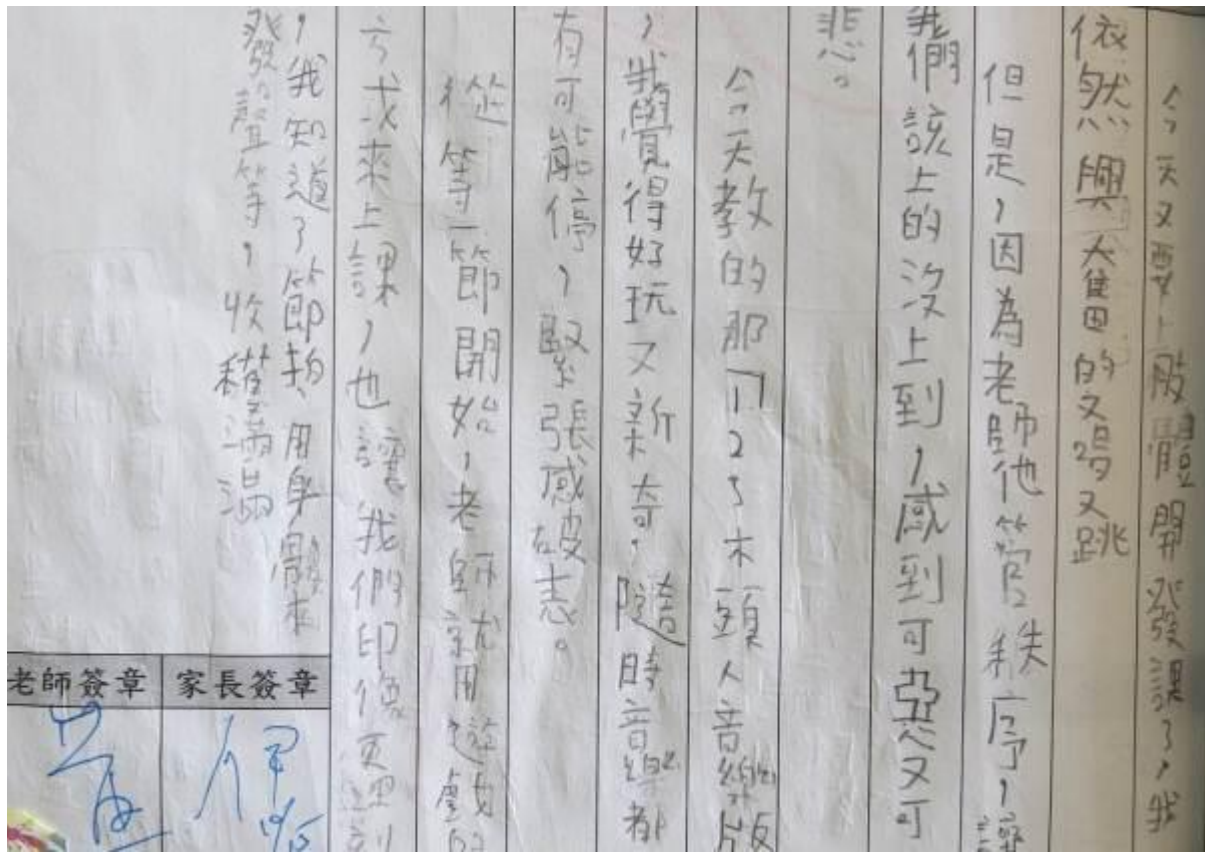 今天又要上肢體開發課了，我
依然興奮的又唱又跳
但是，因為老師他管秩序，讓
我們該上的沒上到，感到可惡又可
悲。
今天教的那「123木頭人音樂版
，我覺得好玩又新奇，隨時音樂都
有可能停，緊張感破表。
從第一節開始，老師就用遊戲的
方式來上課，也讓我們印像更深刻
，我知道了節拍、用身體來
發聲等，收穫滿滿
老師簽章
家長簽章